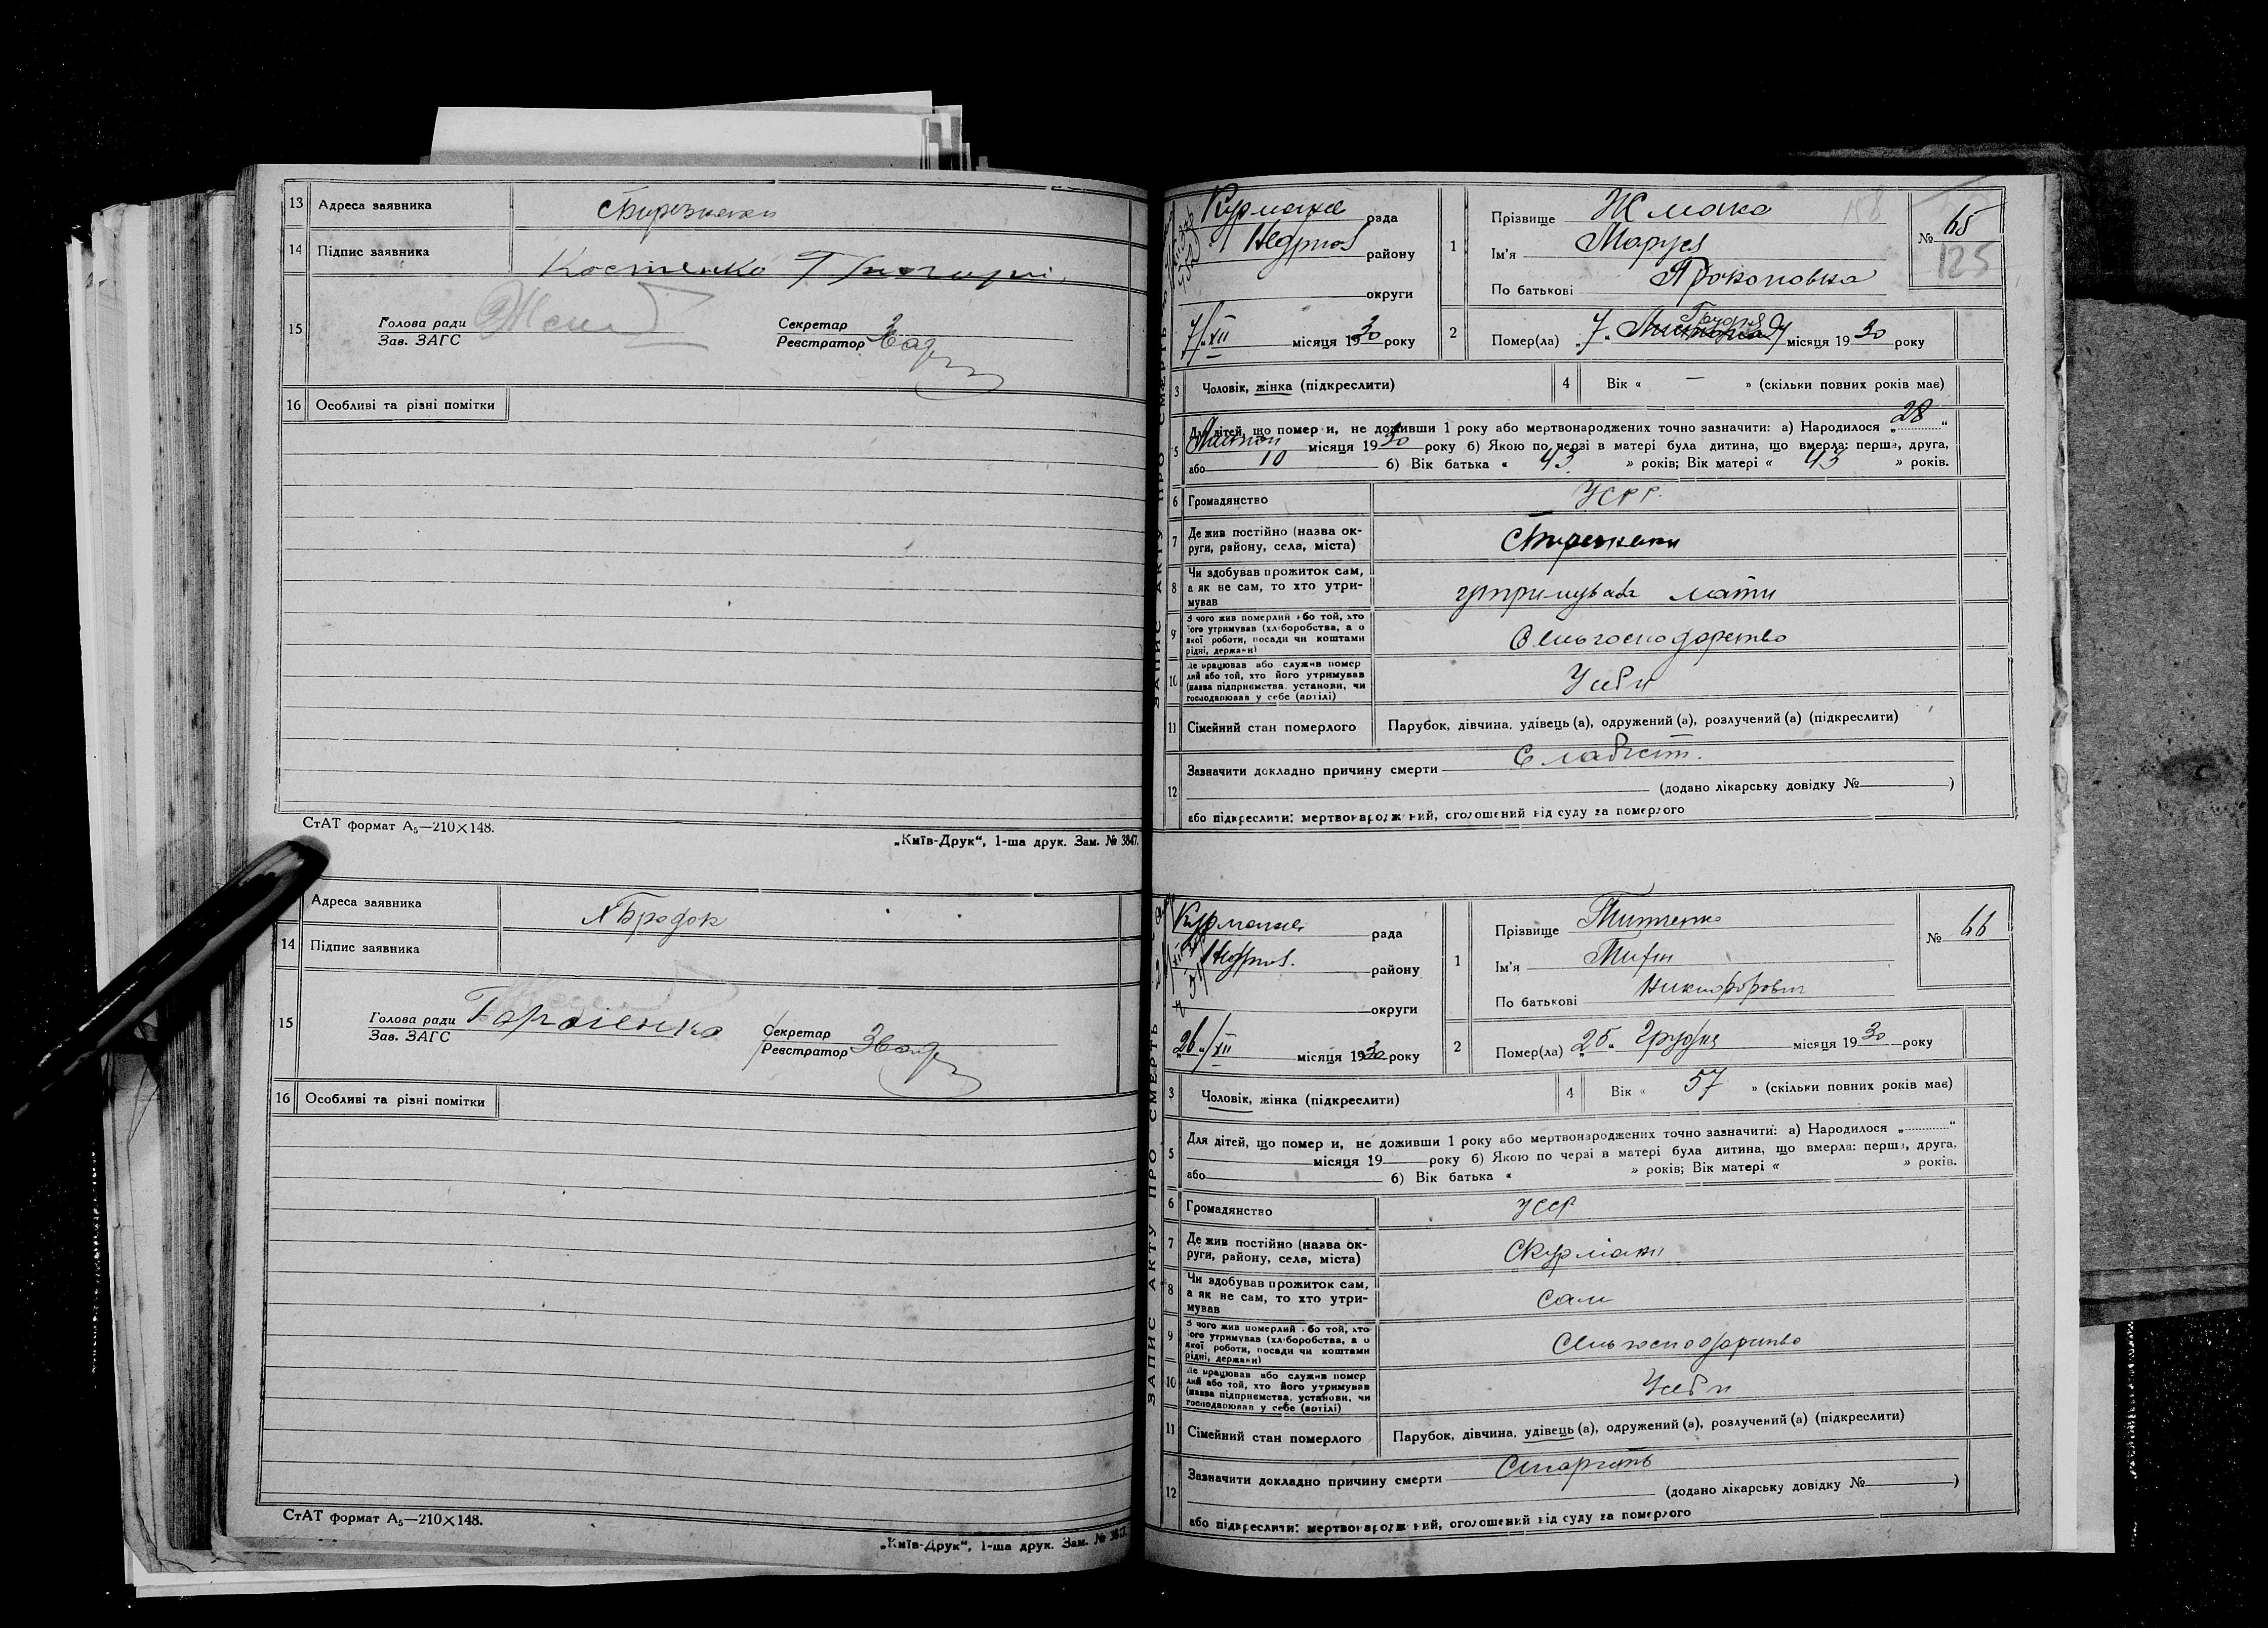 13 Адреса заявника
14 Підпис заявника Костенко
15 Голова ради Секретар
Зав. ЗАГС Реєстратор
16 Особливі та різні помітки
СтАТ формат А5—210×148.
„Київ-Друк“, 1-ша друк. Зам. № 3847.
Адреса заявника
14 Підпис заявника
15 Голова ради Секретар
Зав. ЗАГС Реєстратор
16 Особливі та різні помітки
СтАТ формат А5—210×148.
„Київ-Друк“, 1-ша друк. Зам. № 3847.
ЗАПИС АКТУ ПРО СМЕРТЬ
рада
району
округи
7/XII місяця 1930 року
1 Прізвище Жмака
Ім'я Маруся
По батькові Проконовна
№ 65
125
158
2 Помер(ла) „7“ Грудня місяця 1930 року
3 Чоловік, жінка (підкреслити)
4 Вік « — » (скільки повних років має)
5 Для дітей, що померли, не доживши 1 року або мертвонароджених точно зазначити: а) Народилося „28“
місяця 1930 року б) Якою по черзі в матері була дитина, що вмерла: перша, друга,
або 10 б) Вік батька « 43 » років; Вік матері « 43 » років.
6 Громадянство УСРР
7 Де жив постійно (назва ок-
руги, району, села, міста)
8 Чи здобував прожиток сам,
а як не сам, то хто утри-
мував
мати
9 З чого жив померлий або той, хто
його утримував (хліборобства, а о
якої роботи, посади чи коштами
рідні, держави)
Сельгосподарство
10 Де працював або служив помер
лий або той, хто його утримував
(назва підприємства, установи, чи
господарював у себе (артілі)
У себи
11 Сімейний стан померлого Парубок, дівчина, удівець (а), одружений (а), розлучений (а) (підкреслити)
12 Зазначити докладно причину смерти Слабист.
(додано лікарську довідку № )
або підкреслити: мертвонароджений, оголошений від суду за померлого
ЗАПИС АКТУ ПРО СМЕРТЬ
рада
району
округи
26/XII місяця 1930 року
1 Прізвище Титченко
Ім'я
По батькові Никифорович
№ 66
2 Помер(ла) „25“ Грудня місяця 1930 року
3 Чоловік, жінка (підкреслити)
4 Вік « 57 » (скільки повних років має)
5 Для дітей, що померли, не доживши 1 року або мертвонароджених точно зазначити: а) Народилося „ “
місяця 19 року б) Якою по черзі в матері була дитина, що вмерла: перша, друга,
або б) Вік батька « » років; Вік матері « » років.
6 Громадянство УССР
7 Де жив постійно (назва ок-
руги, району, села, міста)
С Курмани
8 Чи здобував прожиток сам,
а як не сам, то хто утри-
мував
сам
9 З чого жив померлий або той, хто
його утримував (хліборобства, а о
якої роботи, посади чи коштами
рідні, держави)
Сельгосподарство
10 Де працював або служив помер
лий або той, хто його утримував
(назва підприємства, установи, чи
господарював у себе (артілі)
У себи
11 Сімейний стан померлого Парубок, дівчина, удівець (а), одружений (а), розлучений (а) (підкреслити)
12 Зазначити докладно причину смерти Старість
(додано лікарську довідку № )
або підкреслити: мертвонароджений, оголошений від суду за померлого